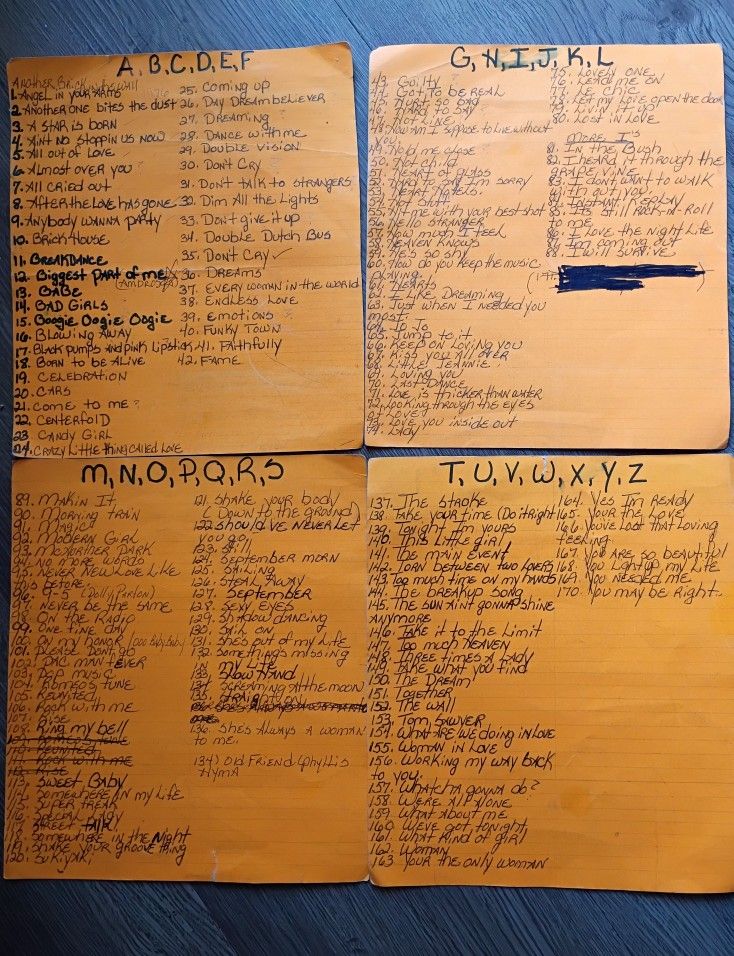 A, B, C, D, E, F
Another Brick in the Wall
1. Angel in your arms
2. Another one bites the dust
3. A Star is born
4. Ain't no stoppin us now
5. All out of Love
6. Almost over you
7. All cried out
8. After the Love has gone
9. Anybody wanna party
10. Brick House
11. Breakdance
12. Biggest Part of me
(Ambrosia)
13. Babe
14. Bad Girls
15. Boogie Oogie Oogie
16. Blowing Away
17. Black pumps and pink Lipstick
18. Born to be Alive
19. Celebration
20. Cars
21. Come to me
22. Centerfold
23. Candy Girl
24. Crazy Little thing called Love
25. Coming up
26. Day Dream believer
27. Dreaming
28. Dance with me
29. Double Vision
30. Don't Cry
31. Don't talk to strangers
32. Dim All the Lights
33. Don't give it up
34. Double Dutch Bus
35. Don't Cry ✓
36. Dreams
37. Every woman in the world
38. Endless Love
39. Emotions
40. Funky Town
41. Faithfully
42. Fame
G, H, I, J, K, L
43. Guilty
44. Got to be real
45. Hurt so bad
46. Hard to say
47. Hot Line
48. How Am I suppose to Live without
you
49. Hold me close
50. Hot child
51. Heart of glass
52. Hard to say I'm sorry
54. Hot Stuff
55. Hit me with your best shot
56. Hello Stranger
57. How much I feel
58. Heaven knows
59. He's so shy
60. How do you keep the music
playing
61. Hearts
62. I Like Dreaming
63. Just when I needed you
most
64. Jo Jo
65. Jump to it
66. Keep on Loving you
67. Kiss you All over
68. Little Jeannie
69. Loving you
70. Last Dance
71. Love is thicker than water
72. Looking through the eyes
of Love
73. Love you inside out
74. Lady
75. Lovely one
76. Lead me on
77. Le Chic
78. Let my Love open the door
79. Living it up
80. Lost in Love
More I's
81. In the Bush
82. I heard it through the
grapevine
83. I don't want to walk
without you
84. Instant Replay
85. It's still Rock-n-Roll
to me
86. I Love the Night Life
87. I'm coming out
88. I will Survive
M, N, O, P, Q, R, S
89. Makin It
90. Morning train
91. Magic
92. Modern Girl
93. MacArther Park
94. No more words
95. Never New Love Like
this Before
96. 9-5 (Dolly Parton)
97. Never be the same
98. On the Radio
99. One fine day
100. On my honor
101. Please Don't go
102. Pac man fever
103. Pop music
104. Romeos tune
105. Reunited
106. Rock with me
107. Rise
108. Ring my bell
113. Sweet Baby
114. Somewhere in my Life
115. Super Freak
116. Special Lady
117. Street Talk
118. Somewhere in the Night
119. Shake your groove thing
120. Sukiyaki
121. Shake your body
(Down to the ground)
122. Should've never let
you go
123. Still
124. September morn
125. Sailing
126. Steal Away
127. September
128. Sexy Eyes
129. Shadow dancing
130. Sail on
131. She's out of my Life
132. Somethings missing
in my Life
133. Slow Hand
134. Screaming At the moon
135. Straight on
136. She's Always a woman
to me.
134) Old Friend (Phyllis
Hyma
T, U, V, W, X, Y, Z
137. The Stroke
138. Take your time (Do it Right)
139. Tonight I'm yours
140. This Little girl
141. The main event
142. Torn between two lovers
143. Too much time on my hands
144. The breakup song
145. The sun aint gonna shine
anymore
146. Take it to the Limit
147. Too much Heaven
148. Three times a Lady
149. Take what you find
150. The Dream
151. Together
152. The wall
153. Tom Sawyer
154. What are we doing in Love
155. Woman in Love
156. Working my way back
to you
157. Whatcha gonna do?
158. Were All Alone
159. What About me
160. We've got tonight
161. What Kind of girl
162. Woman
163. Your the only woman
164. Yes I'm Ready
165. Your the Love
166. Youve Lost that Loving
feeling
167. You are so beautiful
168. You Light up my Life
169. You Needed me
170. You may be Right